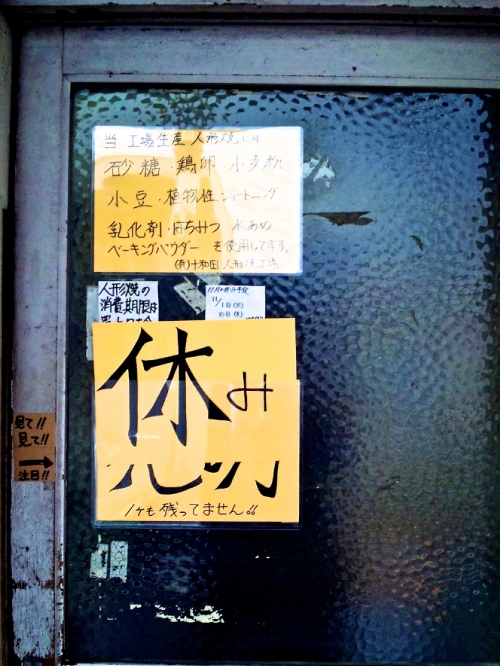 当 工場生産 人形焼には
砂糖・鶏卵・小麦粉
小豆・植物性ショートニング
乳化剤・はちみつ 水あめ
ベーキングパウダー を使用してます。
(有)十和田 人形焼工場
人形焼の
消費期限は
11/1日(火)
10日(月)
休み
1ヶも残ってません!!
見て!!
見て!!
→
注目!!